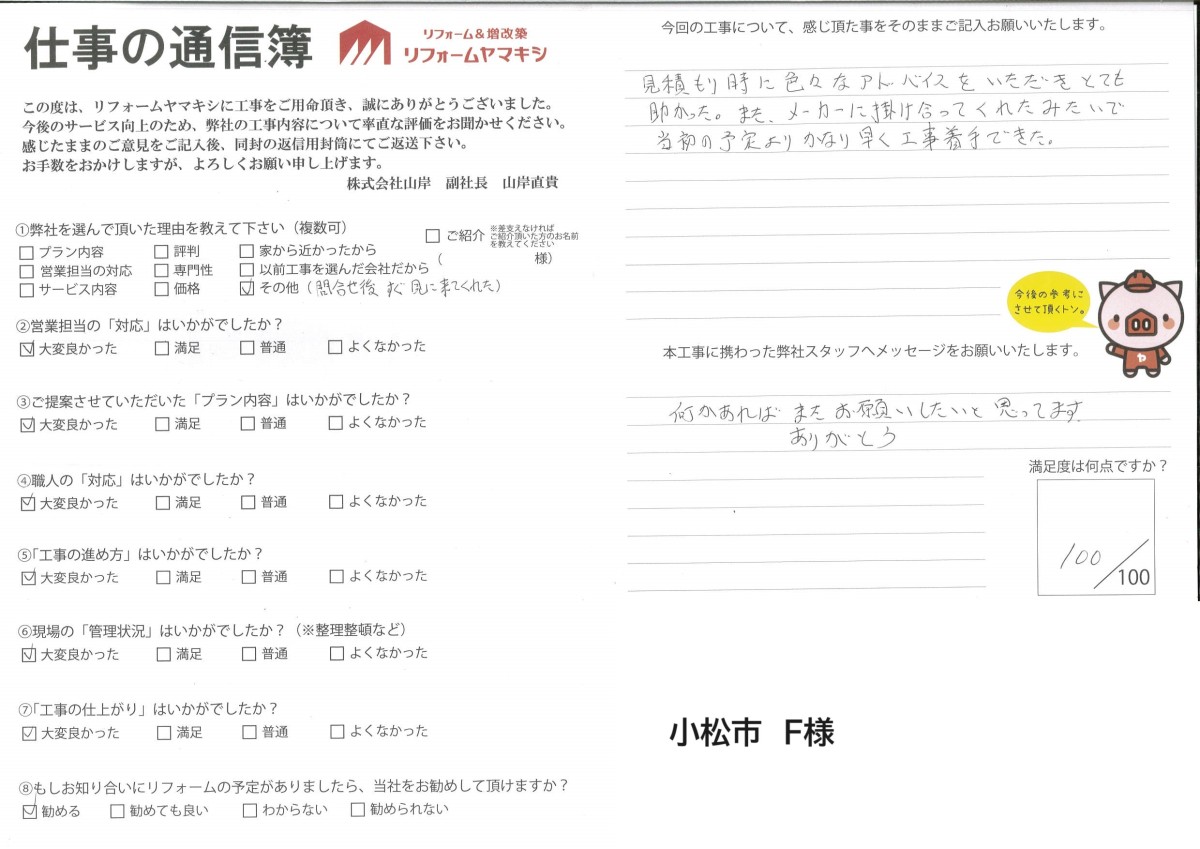 仕事の通信簿
リフォーム＆増改築
リフォームヤマキシ
この度は、リフォームヤマキシに工事をご用命頂き、誠にありがとうございました。
今後のサービス向上のため、弊社の工事内容について率直な評価をお聞かせください。
感じたままのご意見をご記入後、同封の返信用封筒にてご返送下さい。
お手数をおかけしますが、よろしくお願い申し上げます。
株式会社山岸　副社長　山岸直貴
①弊社を選んで頂いた理由を教えて下さい（複数可）
□ プラン内容 □ 評判 □ 家から近かったから □ ご紹介 ※差支えなければ
ご紹介頂いた方のお名前
を教えてください
□ 営業担当の対応 □ 専門性 □ 以前工事を選んだ会社だから （　　　　様）
□ サービス内容 □ 価格 ☑ その他（問合せ後 すぐ 見に来てくれた）
②営業担当の「対応」はいかがでしたか？
☑ 大変良かった □ 満足 □ 普通 □ よくなかった
③ご提案させていただいた「プラン内容」はいかがでしたか？
☑ 大変良かった □ 満足 □ 普通 □ よくなかった
④職人の「対応」はいかがでしたか？
☑ 大変良かった □ 満足 □ 普通 □ よくなかった
⑤「工事の進め方」はいかがでしたか？
☑ 大変良かった □ 満足 □ 普通 □ よくなかった
⑥現場の「管理状況」はいかがでしたか？（※整理整頓など）
☑ 大変良かった □ 満足 □ 普通 □ よくなかった
⑦「工事の仕上がり」はいかがでしたか？
☑ 大変良かった □ 満足 □ 普通 □ よくなかった
⑧もしお知り合いにリフォームの予定がありましたら、当社をお勧めして頂けますか？
☑ 勧める □ 勧めても良い □ わからない □ 勧められない
今回の工事について、感じ頂た事をそのままご記入お願いいたします。
見積もり時に色々なアドバイスをいただきとても
助かった。また、メーカーに掛け合ってくれたみたいで
当初の予定よりかなり早く工事着手できた。
今後の参考に
させて頂くトン。
ヤ
本工事に携わった弊社スタッフへメッセージをお願いいたします。
何かあれば またお願いしたいと思ってます
ありがとう
満足度は何点ですか？
100／100
小松市　F様